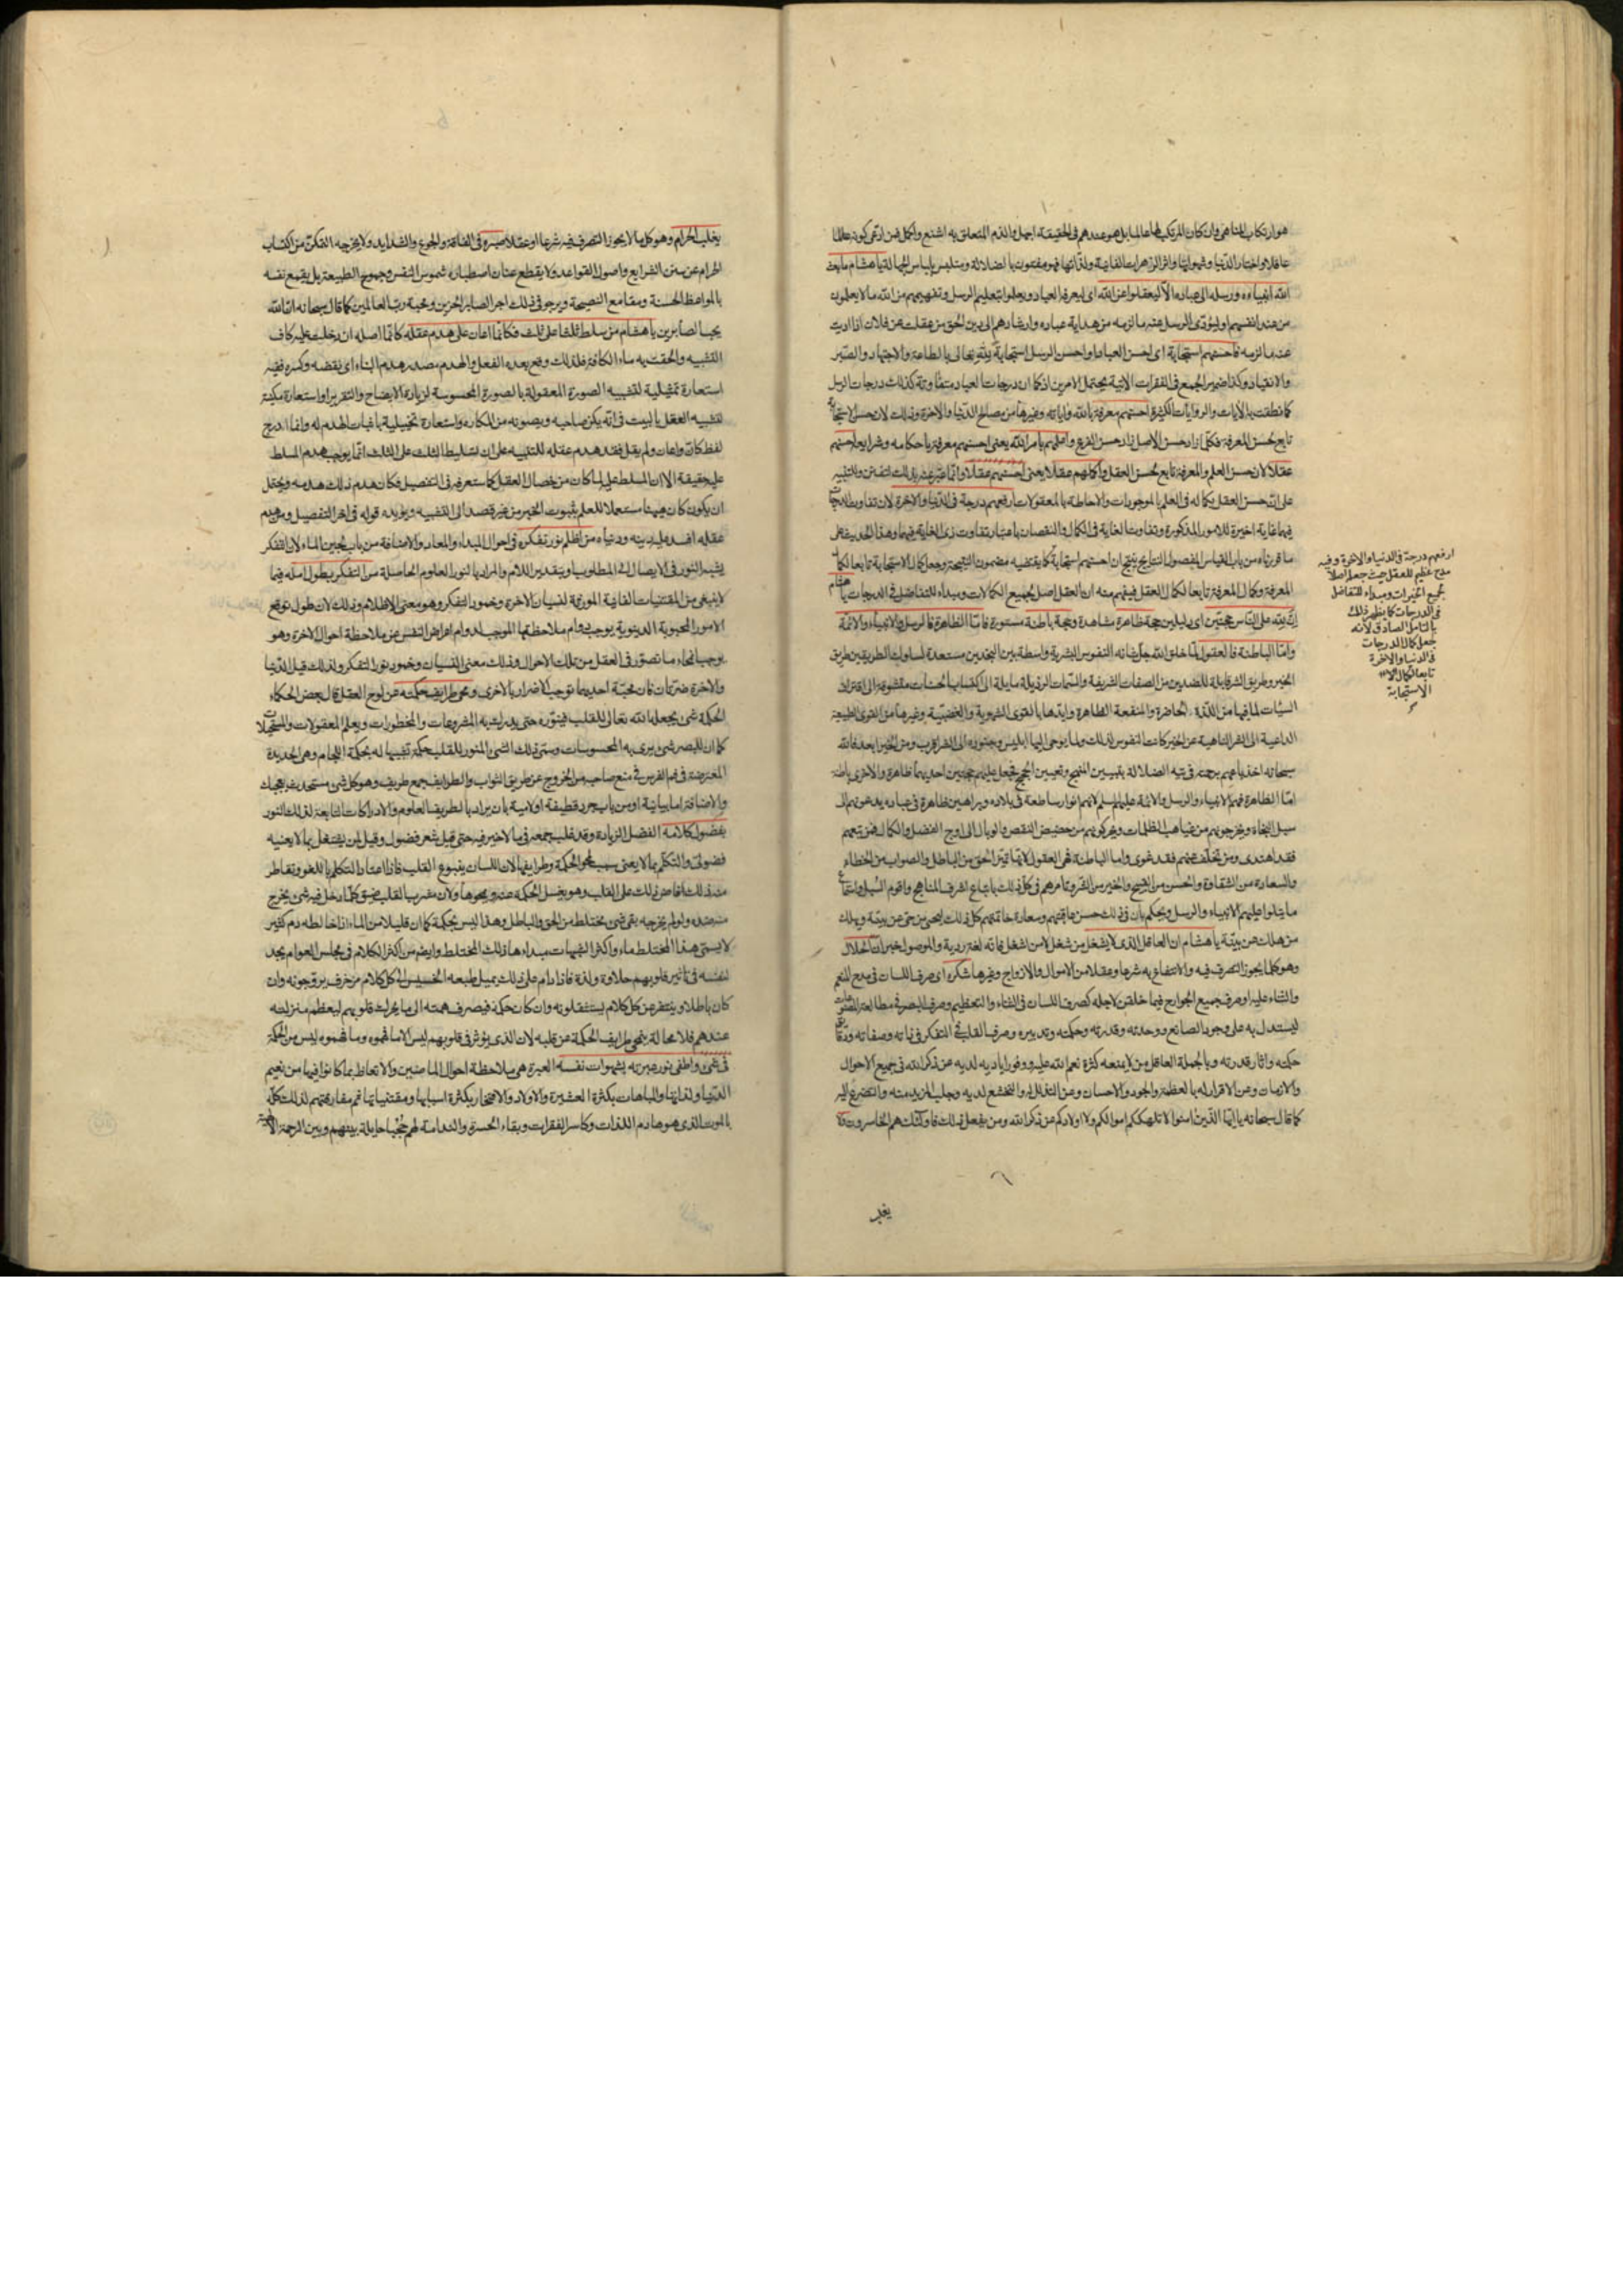 هو ارتكاب المناهي وان كان المرتكب لها عالما بل هو عندهم في الحقيقة اجهل والذم المتعلق به اشنع واكمل فمن ادعى كونه عالما
عاقلا واختار الدنيا وشهواتها واثر الزهرات الفانية ولذاتها فهو مفتون بالضلالة ومتلبس بلباس الجهالة يا هشام ما بعث
الله انبياءه ورسله الى عباده الا ليعقلوا عن الله اي ليعرف العباد ويعلموا بتعليم الرسل وتفهيمهم من الله ما لا يعلمون
من عند انفسهم او ليؤدى الرسل عنه ما لزمه من هداية عباده وارشادهم الى دين الحق من عقلت عن فلان اذا اديت
عنه ما لزمه فاحسنهم استجابة اي احسن العباد او احسن الرسل استجابة لله تعالى بالطاعة والاجتهاد والصبر
والانقياد وكذا ضمير الجمع في الفقرات الاتية يحتمل الامرين اذ كما ان درجات العباد متفاوتة كذلك درجات الرسل
كما نطقت به الايات والروايات الكثيرة احسنهم معرفة بالله واياته وغيرها من مصالح الدنيا والاخرة وذلك لان حسن الاستجابة
تابع لحسن المعرفة فكلما زاد حسن الاصل زاد حسن الفرع واعلمهم بامر الله يعني احسنهم معرفة باحكامه وشرايعه احسنهم
عقلا لان حسن العلم والمعرفة تابع لحسن العقل واكملهم عقلا يعني احسنهم عقلا وانما غير عنه بذلك للتفنن وللتنبيه
على ان حسن العقل بكماله في العلم بالموجودات والاحاطة بالمعقولات ارفعهم درجة في الدنيا والاخرة لان تفاوت الدرجات
فيهما غاية اخيرة للامور المذكورة وتفاوت الغاية في الكمال والنقصان باعتبار تفاوت ذي الغاية فيهما وهذا الحديث على
ما قررناه من باب القياس المفصول النتايج ينتج ان احسنهم استجابة كما يقتضيه مضمون النتيجة وجعل كمال الاستجابة تابعا لكمال
المعرفة وكمال المعرفة تابعا لكمال العقل فيفهم منه ان العقل اصل لجميع الكمالات ومبداء للتفاضل في الدرجات يا هشام
ان لله على الناس حجتين اي دليلين حجة ظاهرة مشاهدة وحجة باطنة مستورة فاما الظاهرة فالرسل والانبياء والائمة
واما الباطنة فالعقول لما خلق الله جل شانه النفوس البشرية واسطة بين النجدين مستعدة لسلوك الطريقين طريق
الخير وطريق الشر قابلة للضدين من الصفات الشريفة والسمات الرذيلة مايلة الى اكتسابها لحسنات متشوقة الى اقتراف
السيئات لما فيها من اللذة الحاضرة والمنفعة الظاهرة وايدها بالقوى الشهوية والغضبية وغيرها من القوى الطبيعة
الداعية الى الشر الناهية عن الخير كانت النفوس لذلك ولما يوحى اليها ابليس وجنوده الى الشر اقرب ومن الخير ابعد فالله
سبحانه اخذ بايديهم برحمته في تيه الضلالة بتبيين المنهج وتعيين الحجج فجعل عليهم حجتين احديهما ظاهرة والاخرى باطنة
اما الظاهرة فهم الانبياء والرسل والائمة عليهم السلم لانهم انوار ساطعة في بلاده وبراهين ظاهرة في عباده يدعونهم الى
سبيل النجاة ويخرجونهم من غياهب الظلمات ويحركونهم من حضيض النقص والوبال الى اوج الفضل والكمال فمن تبعهم
فقد اهتدى ومن تخلف عنهم فقد غوى واما الباطنة فهي العقول لانها تميز الحق من الباطل والصواب من الخطاء
والسعادة من الشقاوة والحسن من القبيح والخير من الشر وتامرهم في كل ذلك باتباع اشرف المناهج واقوم السبل واستماع
ما يتلوا عليهم الانبياء والرسل ويحكم بان في ذلك حسن عاقبتهم وسعادة خاتمتهم كل ذلك ليحيى من حي عن بينة ويهلك
من هلك عن بينة يا هشام ان العاقل الذي لا يشغل من شغل لا من اشغل فانه لغة ردية والموصول خبر ان الحلال
وهو كل ما يجوز التصرف فيه والانتفاع به شرعا وعقلا من الاموال والازواج وغيرها شكره اي صرف اللسان في مدح المنعم
والثناء عليه او صرف جميع الجوارح فيما خلقن لاجله كصرف اللسان في الثناء والتعظيم وصرف البصر في مطالعة المصنوعات
ليستدل به على وجود الصانع ووحدته وقدرته وحكمته وتدبيره وصرف القلب في التفكر في ذاته وصفاته ودقايق
حكمه واثار قدرته وبالجملة العاقل من لا يمنعه كثرة نعم الله عليه ووفور اياديه لديه عن ذكر الله في جميع الاحوال
والازمان وعن الاقرار له بالعظمة والجود والاحسان وعن التذلل له والتخشع لديه وجلب المزيد منه والتضرع اليه
كما قال سبحانه يا ايها الذين امنوا لا تلهكم اموالكم ولا اولادكم عن ذكر الله ومن يفعل ذلك فاولئك هم الخاسرون ولا
يغلب
ارفعهم درجة في الدنيا والاخرة وفيه
مدح عظيم للعقل حيث جعله اصلا
لجميع الخيرات ومبداء للتفاضل
في الدرجات كما يظهر ذلك
بالتامل الصادق لانه
جعل كمال الدرجات
في الدنيا والاخرة
تابعا لكمال
الاستجابة
يغلب الحرام وهو كل ما لا يجوز التصرف فيه شرعا او عقلا صبره في الفاقة والجوع والشدايد ولا يخرجه التمكن من اكتساب
الحرام عن سنن الشرايع واصول القواعد ولا يقطع عنان اصطباره شموس النفس وجموح الطبيعة بل يقمع نفسه
بالمواعظ الحسنة ومقامع النصيحة ويرجو في ذلك اجر الصابر الحزين ومحبة رب العالمين كما قال سبحانه ان الله
يحب الصابرين يا هشام من سلط ثلثا على ثلث فكانما اعان على هدم عقله كانما اصله ان دخلت عليه كاف
التشبيه والحقت به ماء الكافة فلذلك وقع بعده الفعل والهدم مصدر هدم البناء اي نقضه وكسره ففيه
استعارة تمثيلية لتشبيه الصورة المعقولة بالصورة المحسوسة لزيادة الايضاح والتقرير او استعارة مكنية
لتشبيه العقل بالبيت في انه يكن صاحبه ويصونه من المكاره واستعارة تخييلية باثبات الهدم له وانما ادرج
لفظ كان واعان ولم يقل فقد هدم عقله للتنبيه على ان تسليط الثلث على الثلث انما يوجب هدم المسلط
عليه حقيقة الا ان المسلط عليه لما كان من خصال العقل كما ستعرفه في التفصيل فكان هدم ذلك هدمه ويحتمل
ان يكون كان ههنا مستعملا للعلم بثبوت الخبر من غير قصد الى التشبيه ويؤيده قوله في اخر التفصيل ومن هدم
عقله افسد عليه دينه ودنياه من اظلم نور تفكره في احوال المبداء والمعاد والاضافة من باب لجين الماء لان التفكر
يشبه النور في الايصال الى المطلوب او بتقدير اللام والمراد بالنور العلوم الحاصلة من التفكر بطول امله فيما
لا ينبغي من المقتنيات الفانية المورثة لنسيان الاخرة وخمود التفكر وهو معنى الاظلام وذلك لان طول توقع
الامور المحبوبة الدنيوية يوجب دوام ملاحظتها الموجب لدوام اعراض النفس عن ملاحظة احوال الاخرة وهو
يوجب انمحاء ما تصور في العقل من تلك الاحوال وذلك معنى النسيان وخمود نور التفكر ولذلك قيل الدنيا
والاخرة ضرتان فان محبة احديهما توجب الاضرار بالاخرى ومحى طرايف حكمته عن لوح العقل قال بعض الحكماء
الحكمة شيء يجعله الله تعالى للقلب فينوره حتى يدرك به المشروعات والمحظورات ويعلم المعقولات والمستحيلات
كما ان للبصر شيء يرى به المحسوسات وسمى ذلك الشيء المنور للقلب حكمة تشبيها له بحكمة اللجام وهي الحديدة
المعترضة في فم الفرس في منع صاحبه من الخروج عن طريق الثواب والطرايف جمع طريف وهو كل شيء مستحدث يعجبك
والاضافة اما بيانية او لامية او من باب جرد قطيفة بان يراد بالطريف العلوم والادراكات التابعة لذلك النور
بفضول كلامه الفضل الزيادة وقد غلب جمعه في ما لا خير فيه حتى قيل شعر فضول وقيل لمن يشتغل بما لا يعنيه
فضولي والتكلم بما لا يعني سبب لمحو الحكمة وطرايفها لان اللسان ينبوع القلب فاذا اعتاد التكلم باللغو وتقاطر
منه ذلك افاض ذلك على القلب وهو يغسل الحكمة عنه ويمحوها ولان مشرب القلب ضيق كلما دخل فيه شيء يخرج
منه ضده ولو لم يخرجه بقي شيء مختلط من الحق والباطل وهذا ليس بحكمة كما ان قليلا من الماء اذا خالطه دم كثير
لا يسمى هذا المختلط ماء واكثر الشبهات مبداءها ذلك المختلط وايضا من اكثر الكلام في مجلس العوام يجد
لنفسه في تاثير قلوبهم حلاوة ولذة فاذا دام على ذلك يميل طبعه الخسيس الى كل كلام مزخرف يروجونه وان
كان باطلا وينتفر عن كل كلام يستثقلونه وان كان حكمة فيصرف همته الى ما يحرك قلوبهم ليعظم منزلته
عندهم فلا محالة ينمحي طرايف الحكمة عن قلبه لان الذي يؤثر في قلوبهم ليس الا ما فهموه وما فهموه ليس من الحكمة
في شيء واطفى نور عبرته بشهوات نفسه العبرة هي ملاحظة احوال الماضين والاتعاظ بما كانوا فيها من نعيم
الدنيا ولذاتها والمباهات بكثرة العشيرة والاولاد والافتخار بكثرة اسبابها ومقتنياتها ثم مفارقتهم لذلك كله
بالموت الذي هو هادم اللذات وكاسر الفقرات وبقاء الحسرة والندامة لهم حجبا حايلة بينهم وبين الرحمة الالهية